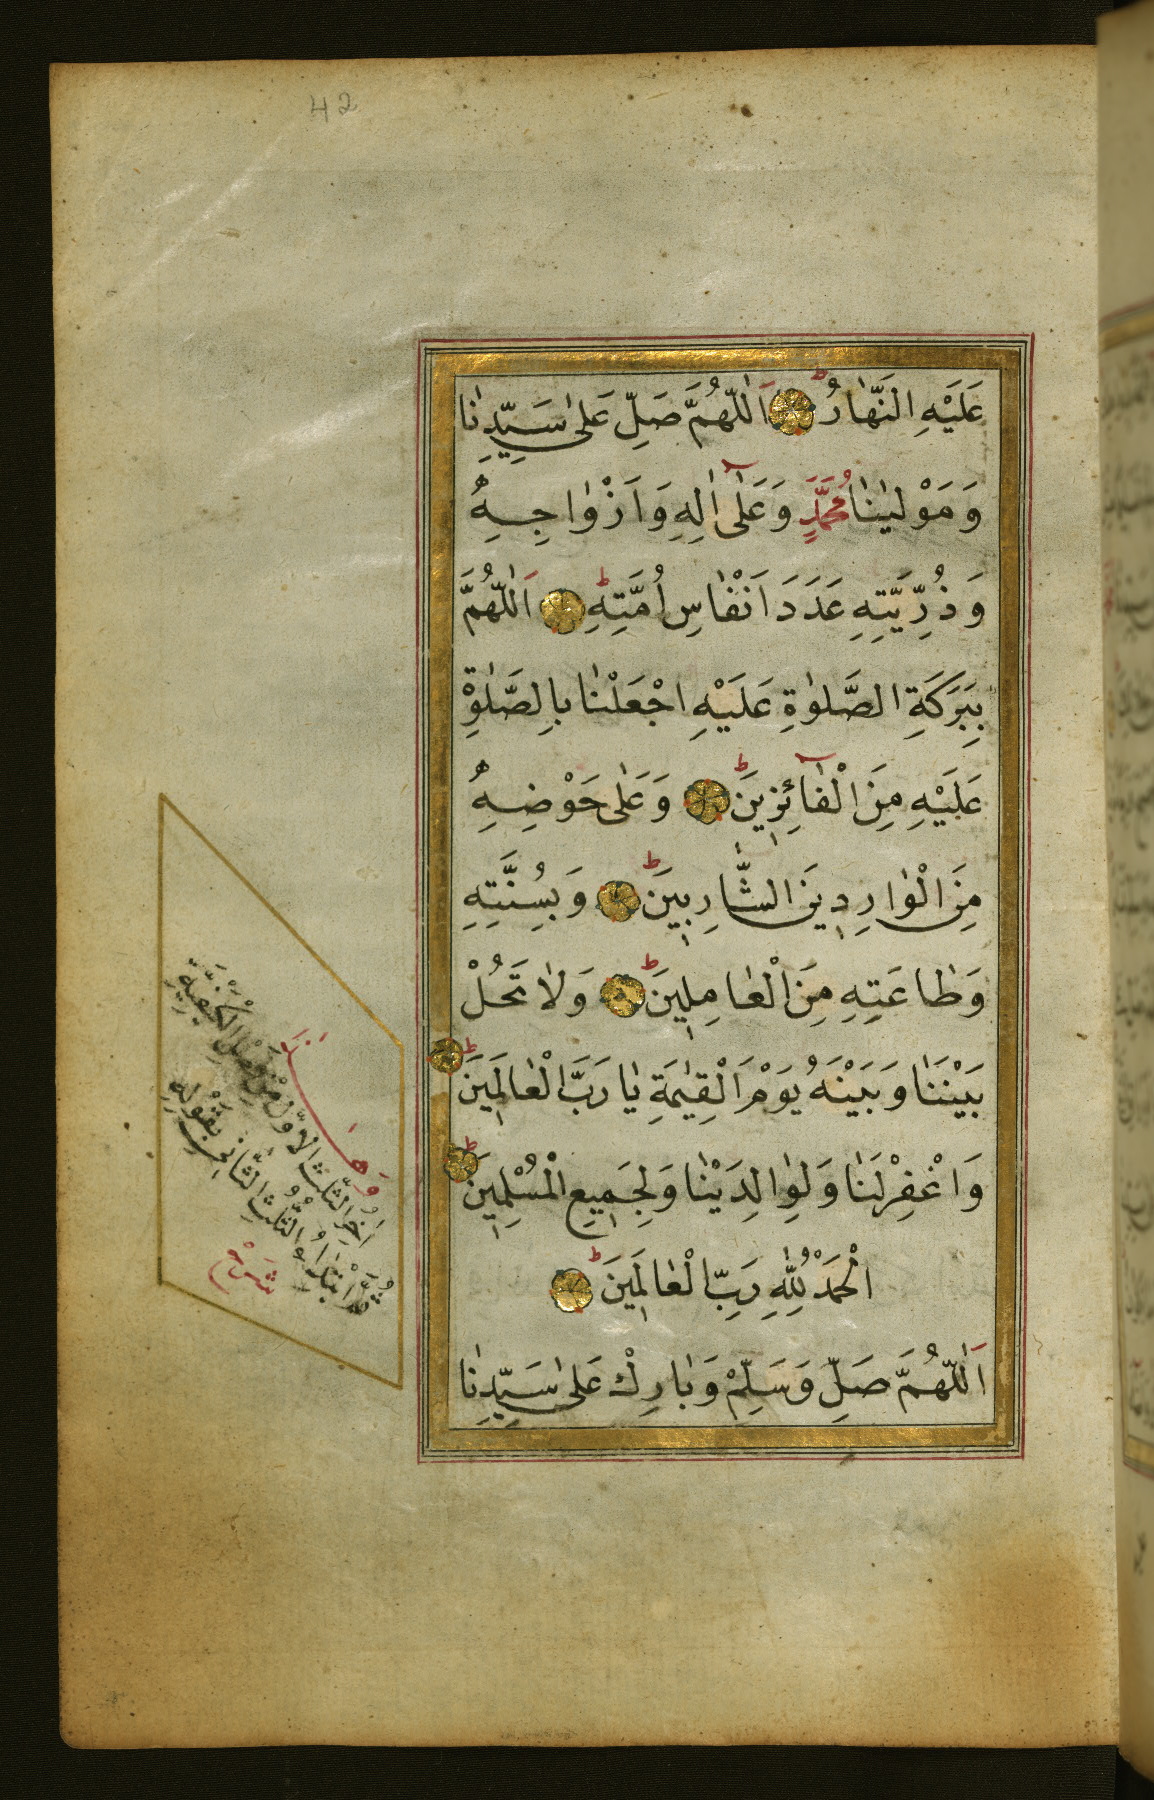 42
عَلَيْهِ النَّهَارُ اَللّٰهُمَّ صَلِّ عَلٰى سَيِّدِنَا
وَمَوْلٰينَا مُحَمَّدٍ وَعَلٰٓى اٰلِهِ وَاَزْوَاجِهِ
وَذُرِّيَّتِهِ عَدَدَ اَنْفَاسِ اُمَّتِهِ اَللّٰهُمَّ
بِبَرَكَةِ الصَّلٰوةِ عَلَيْهِ اجْعَلْنَا بِالصَّلٰوةِ
عَلَيْهِ مِنَ الْفَآئِزِينَ وَعَلٰى حَوْضِهِ
مِنَ الْوَارِدِينَ الشَّارِبِينَ وَبِسُنَّتِهِ
وَطَاعَتِهِ مِنَ الْعَامِلِينَ وَلَا تَحُلْ
بَيْنَنَا وَبَيْنَهُ يَوْمَ الْقِيٰمَةِ يَا رَبَّ الْعَالَمِينَ
وَاغْفِرْ لَنَا وَلِوَالِدَيْنَا وَلِجَمِيعِ الْمُسْلِمِينَ
الْحَمْدُ لِلّٰهِ رَبِّ الْعَالَمِينَ
اَللّٰهُمَّ صَلِّ وَسَلِّمْ وَبَارِكْ عَلٰى سَيِّدِنَا
اٰخِرُ الثُّلُثِ الْاَوَّلِ مِنْ
ثُمَّ ابْتِدَاءُ الثُّلُثِ الثَّانِي بِقَوْلِهِ
شَرْح